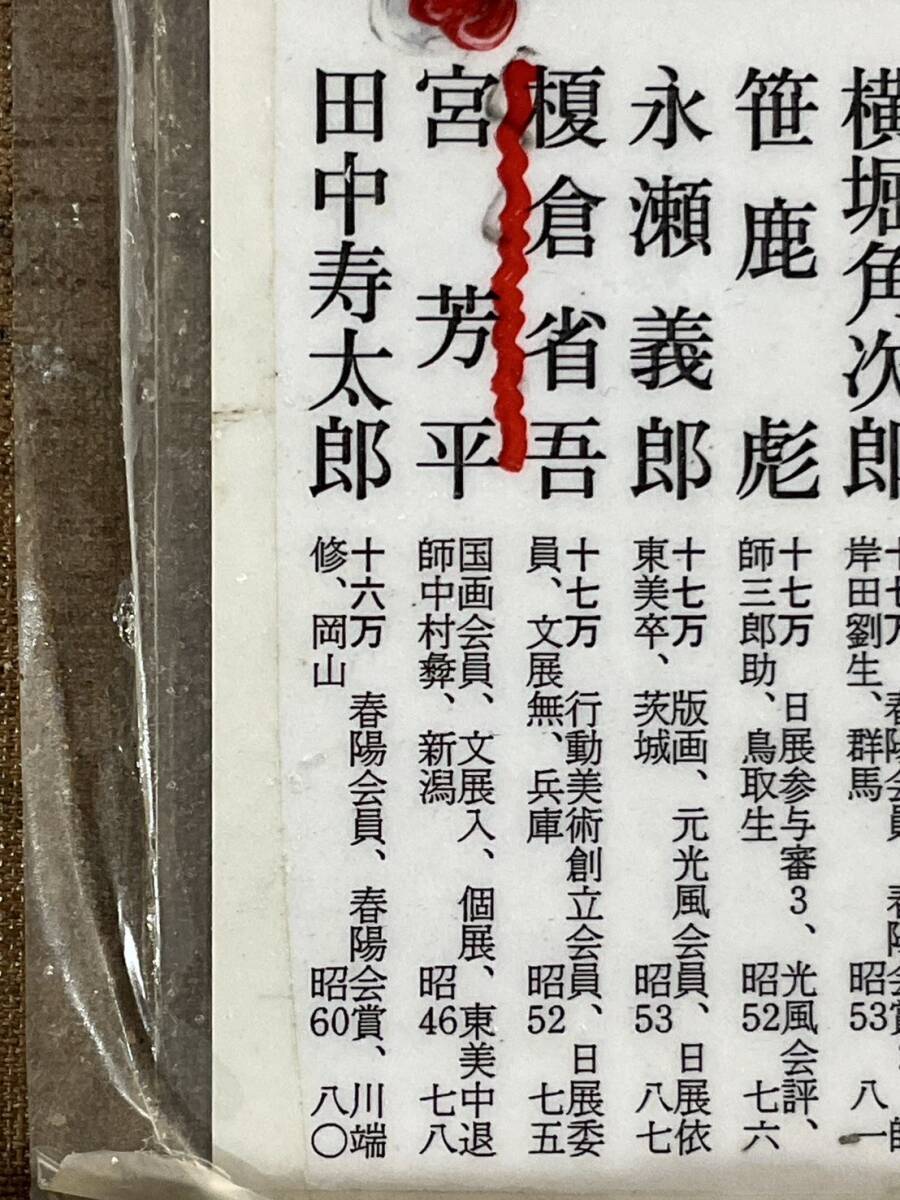 横堀角次郎
十七万 春陽会員、春陽会賞、師
岸田劉生、群馬 昭53 八一
笹鹿彪
十七万 日展参与審3、光風会評、
師三郎助、鳥取生 昭52 七六
永瀬義郎
十七万 版画、元光風会員、日展依
東美卒、茨城 昭53 八七
榎倉省吾
十七万 行動美術創立会員、日展委
員、文展無、兵庫 昭52 七五
宮芳平
国画会員、文展入、個展、東美中退
師中村彝、新潟 昭46 七八
田中寿太郎
十六万 春陽会員、春陽会賞、川端
修、岡山 昭60 八〇